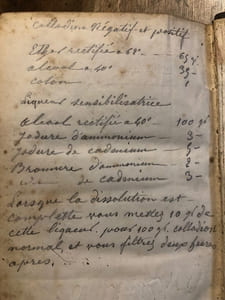 Collodion Négatif et positif
Ether rectifié a 62° — 65 gr
alcool a 40° — 35 -
coton — 1
Liqueur sensibilisatrice
Alcool rectifié a 40° — 100 gr
Jodure d'ammonium — 3 -
Jodure de cadmium — 5 -
Bromure d'ammonium — 2 -
de cadmium — 3 -
Lorsque la dissolution est
complette vous mettez 10 gr de
cette liqueur pour 100 gr collodion
normal, et vous filtrez deux heures
après.